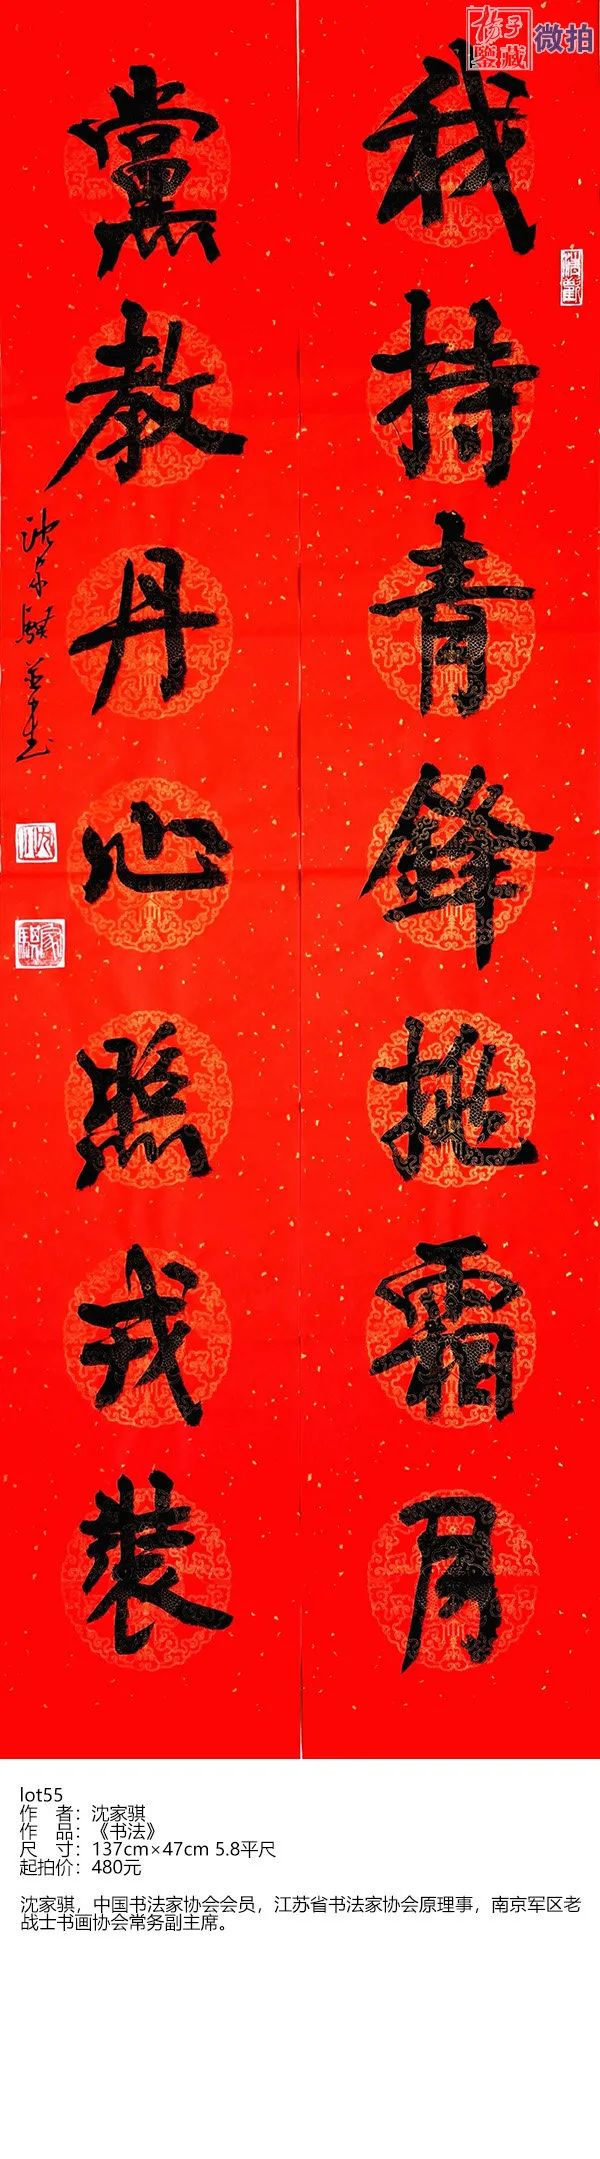 扬子
鑒藏
微拍
我持青鋒挑霜月
黨教丹心照戎裝
沈家騏並書
家騏
lot55
作 者：沈家骐
作 品：《书法》
尺 寸：137cm×47cm 5.8平尺
起拍价：480元
沈家骐，中国书法家协会会员，江苏省书法家协会原理事，南京军区老
战士书画协会常务副主席。